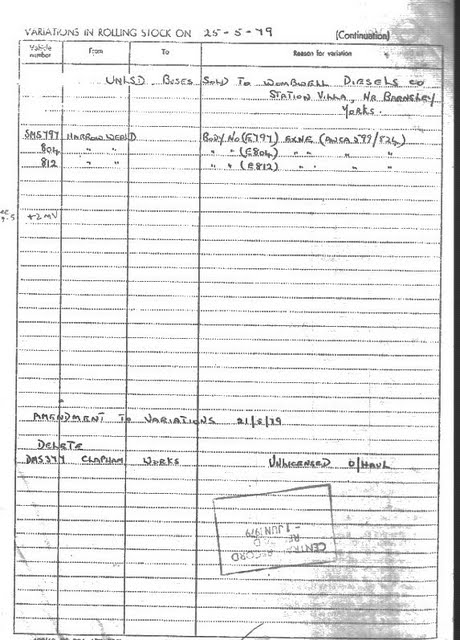 VARIATIONS IN ROLLING STOCK ON 25-5-79 (Continuation)
Vehicle number From To Reason for variation
UNLSD. BUSES SOLD TO WOMBWELL DIESELS CO
STATION VILLA, NR BARNSLEY
YORKS.
SMS797 HARROW WEALD BODY NO (E797) EXNE (
804 " " " " (E804) " " "
812 " " " " (E812) " " "
+2 MV
AMENDMENT TO VARIATIONS 21/5/79
DELETE
DMS377 CLAPHAM WORKS UNLICENSED O/HAUL
CENTRAL RECORD
REC'D
- 1 JUN 1979